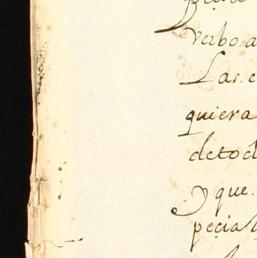 verbo.a
Las.e
quiera
detod
y que.
pecia